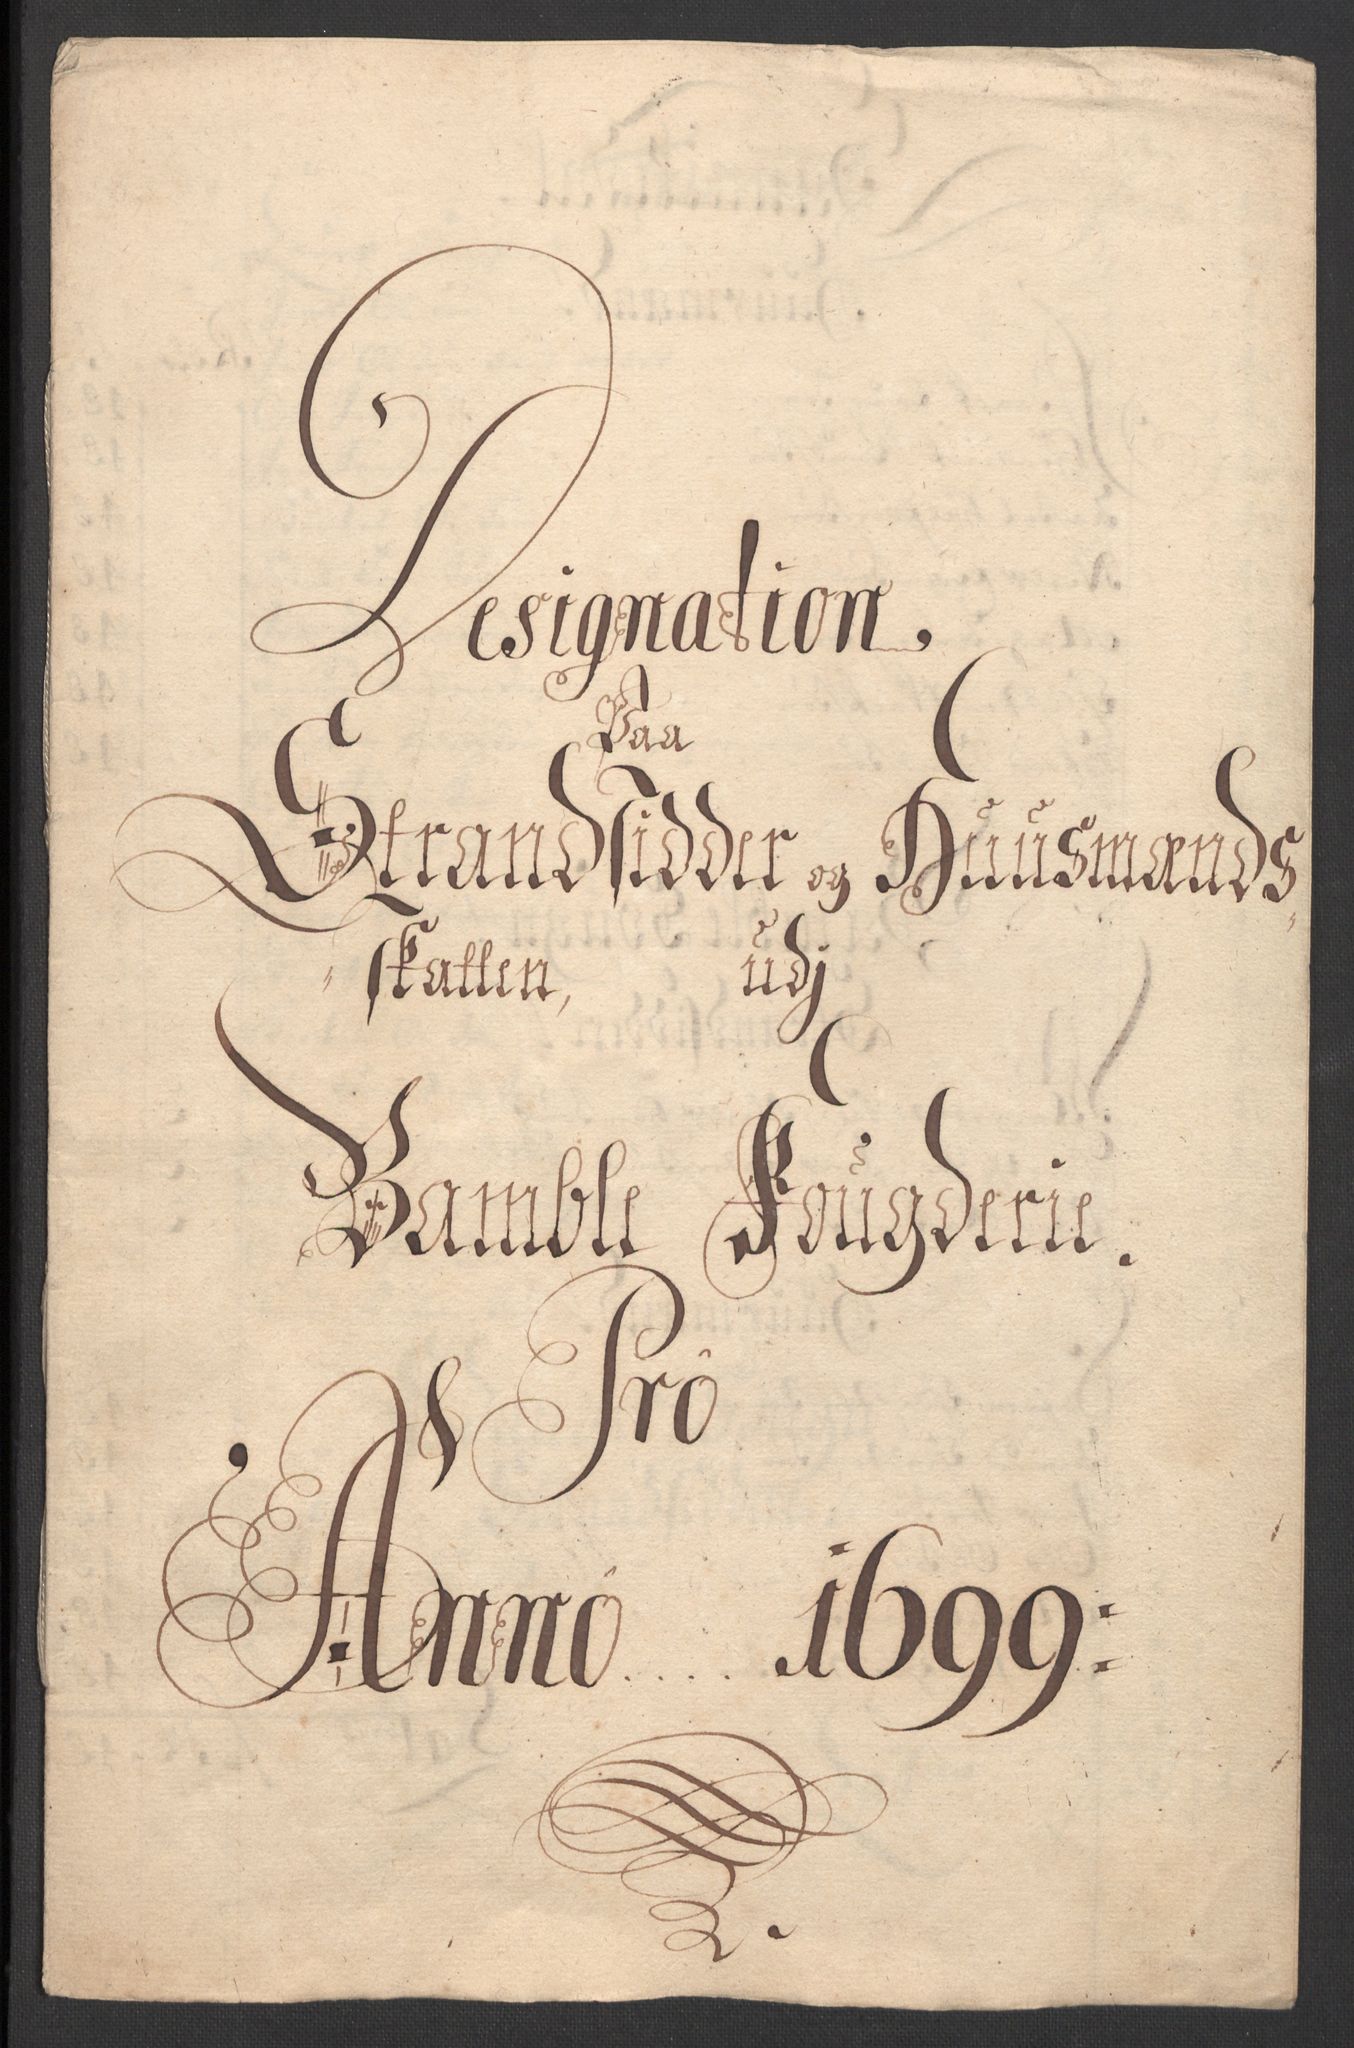 Designation.
Paa
Strandsidder og Huusmænds
skatten, udj
Bamble Fougderie.
Pro
Anno .... 1699: